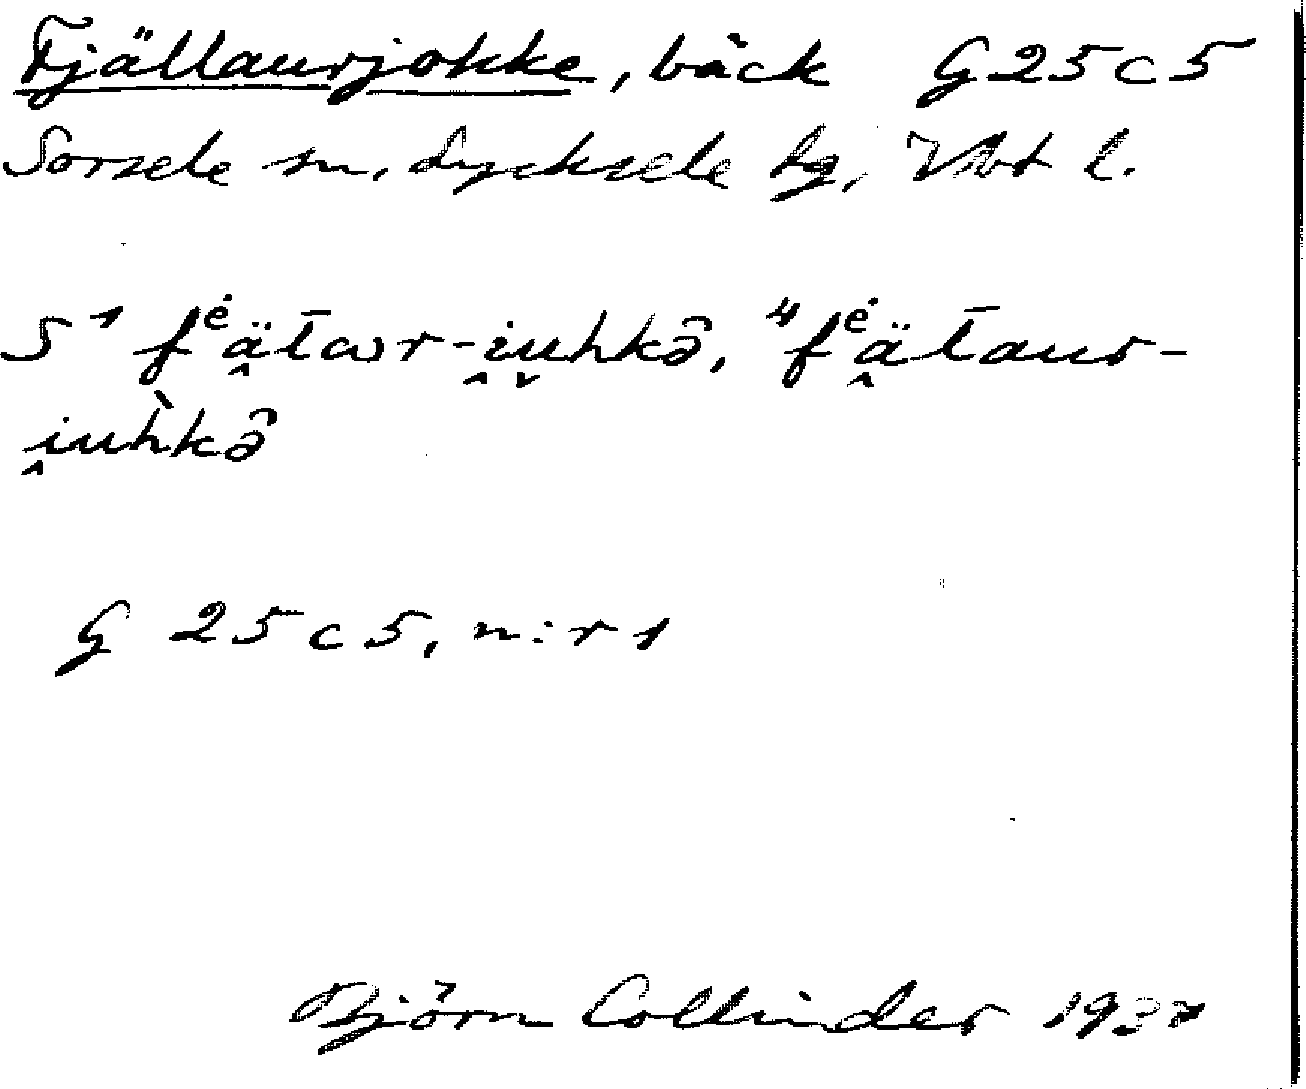 Fjällaurjokke, bäck G25c5
Sorsele sn, Lycksele tg, Vbt l.
S ¹ fėä̭l̄ωr-i̭u̬hkə̂, ⁴fėä̭l̄aur-
i̭uh̀kə̂
G 25c5, n:r 1
Björn Collinder 1937